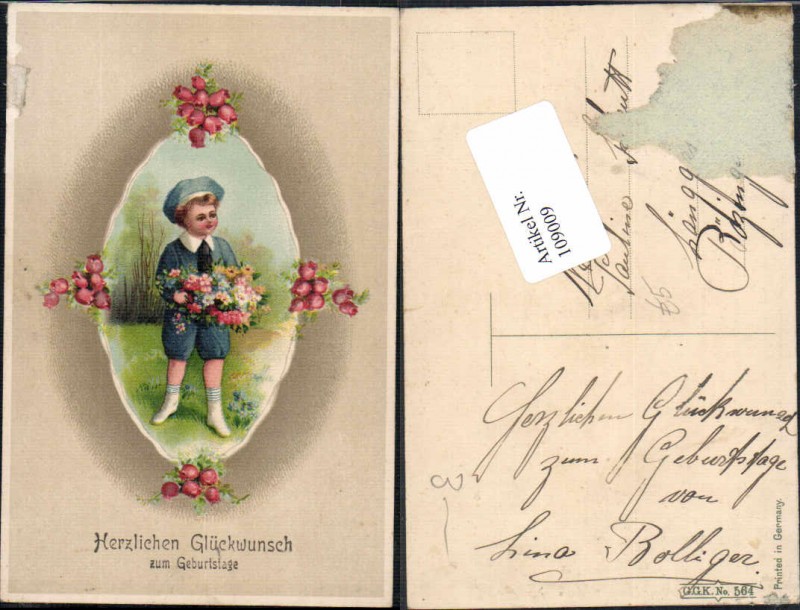 Herzlichen Glückwunsch
zum Geburtstage
Artikel Nr.
109009
Pauline
85
Herzlichen Glückwunsch
zum Geburtstage
von
Lina Bolliger.
G.G.K. No. 564
Printed in Germany.